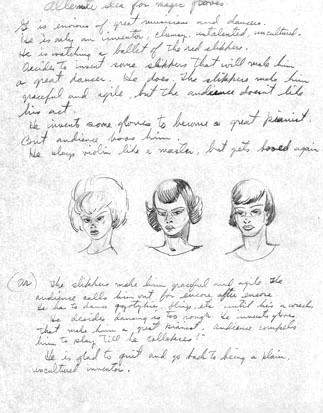 Alternate idea for magic gloves
G. is envious of great musicians and dancers.
He is only an inventor, clumsy, untalented, uncultured.
He is watching a ballet of the red slippers.
Decides to invent some slippers that will make him
a great dancer. He does. The slippers make him
graceful and agile, but the audience doesn't like
his act.
He invents some gloves to become a great pianist.
But audience boos him.
He plays violin like a master, but gets booed again
(or) The slippers make him graceful and agile. The
audience calls him out for encore after encore
He has to dance flings, etc until he's a wreck
He decides dancing is too rough. He invents gloves
that make him a great pianist. Audience compels
him to play till he collapses!
He is glad to quit and go back to being a plain,
uncultured inventor.